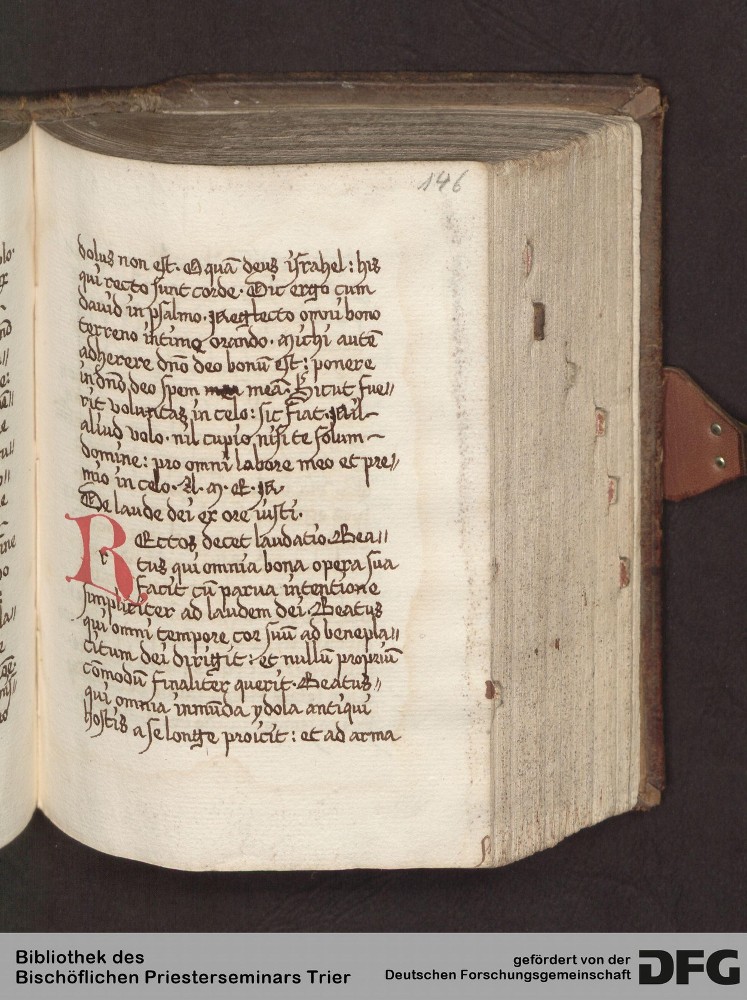 146
dolus non est. O quā deus israhel: his
qui recto sunt corde. Dic ergo cum
dauid in psalmo. Neglecto omni bono
terreno intimeqꝫ orando. Michi autē
adherere dnō deo bonū est: ponere
in dnō deo spem meā. Sicut fue//
rit voluntas in celo: sic fiat. Nil
aliud volo. nil cupio nisi te solum
domine: pro omni labore meo et pre//
mio in celo. A. M. E. N.
De laude dei ex ore iusti.
REctos decet laudatio. Bea//
tus qui omnia bona opera sua
facit cū parua intentione
simpliciter ad laudem dei. Beatus
qui omni tempore cor suū ad benepla//
citum dei dirigit: et nullū propriū
cōmodū finaliter querit. Beatus//
qui omnia inmūda ydola antiqui
hostis a se longe proicit: et ad arma
Bibliothek des
Bischöflichen Priesterseminars Trier
gefördert von der
Deutschen Forschungsgemeinschaft
DFG